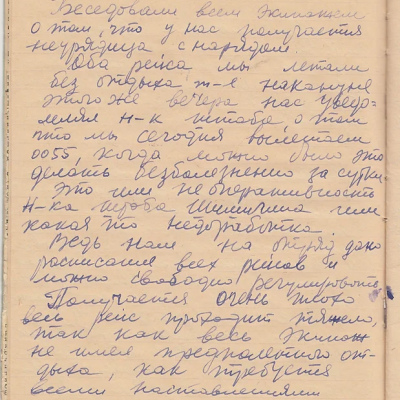 Беседовали всем экипажем
о том, что у нас получается
неурядица с нарядом.
Оба рейса мы летали
без отдыха т-е накануне
этого же вечера нас уведо-
млял Н-к штаба о том
что мы сегодня вылетаем
0055, когда можно было это
делать безболезненно за сутки
Это или не оперативность
Н-ка штаба или
какая то недоработка.
Ведь нам на отряд дано
расписание всех рейсов и
можно свободно регулировать
Получается очень плохо
весь рейс проходит тяжело,
так как весь экипаж
не имел предполетного от-
дыха, как требуется
всеми наставлениями